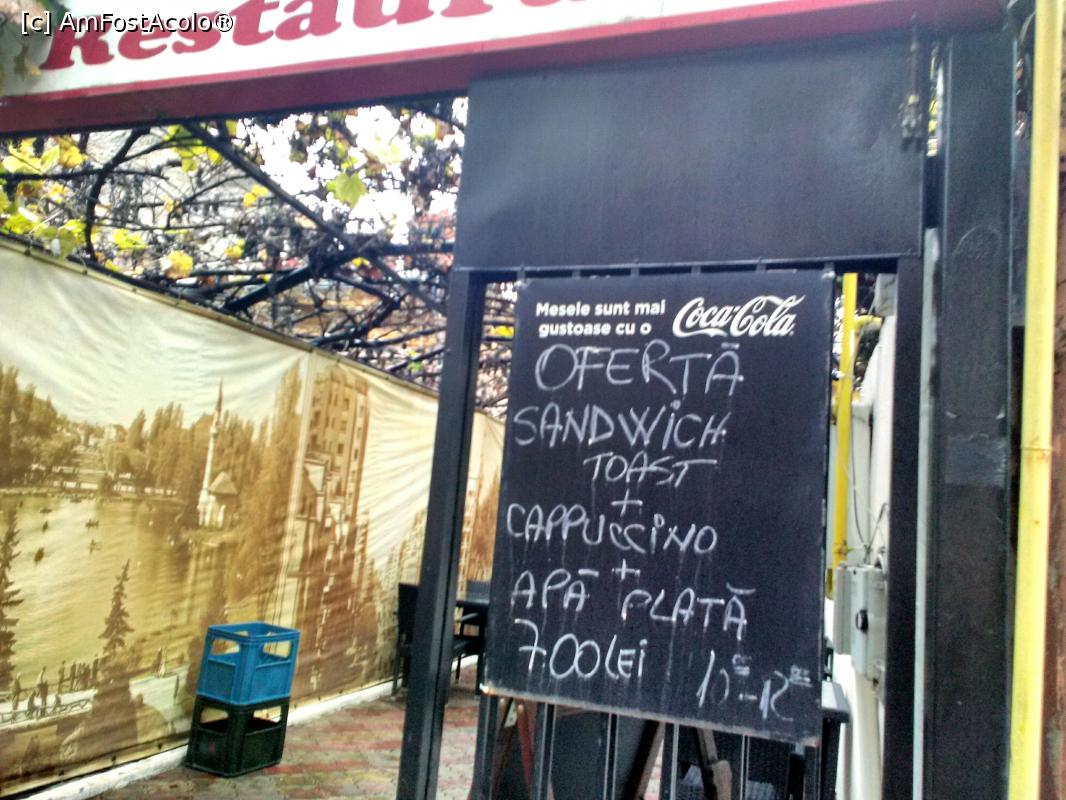 [c] AmFostAcolo®
Restaura
Mesele sunt mai
gustoase cu o Coca-Cola
OFERTĂ
SANDWiCH
TOAST
+
CAPPUCCiNO
+
APĂ PLATĂ
7.00 LEi 10⁰⁰-12⁰⁰